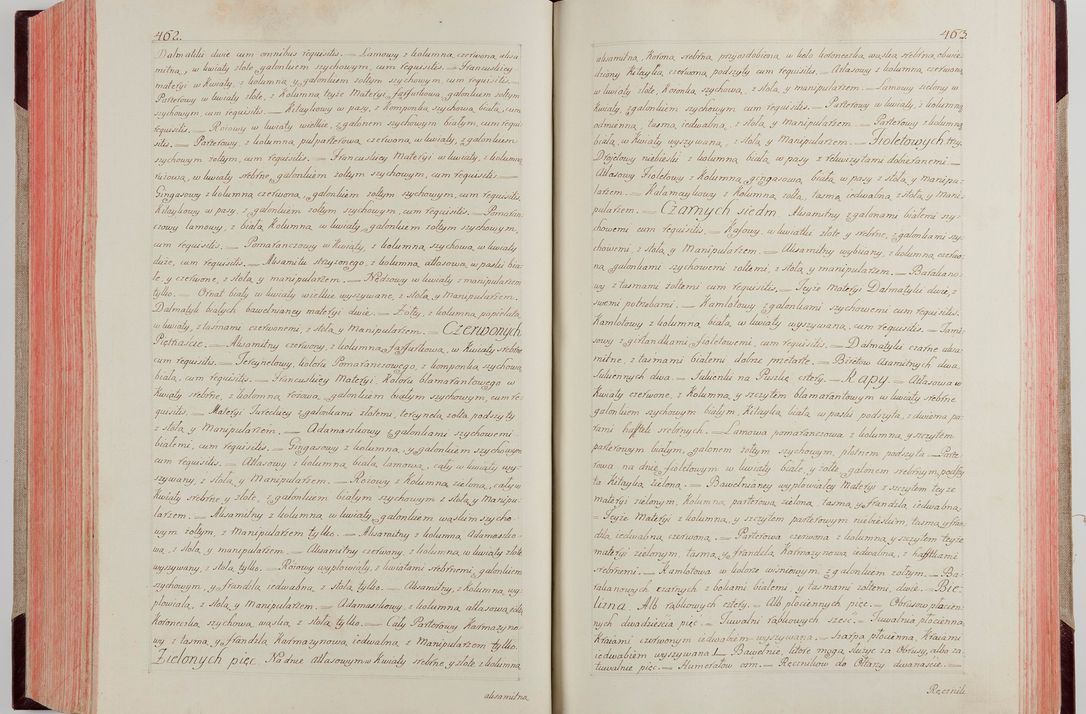 462.
Dalmatiki dwie cum omnibus requisitis. — Lamowy z kolumną czerwoną aksa
mitną, w kwiaty złote galonkiem szychowym, cum requisitis. — Francuskiey
materyi w Kwiaty, z kolumną y galonkiem żołtym szychowym, cum requisitis. —
Parterowy w kwiaty złote, z Kolumną teyże Materyi, galonkiem żołtym
szychowym, cum requisitis. — Kitaykowy w pasy, z kolumną szychową białą, cum
requisitis. — Rżowy w kwiaty wielkie, z galonem szychowym białym, cum requi
sitis. — Parterowy, z kolumną pułparterową czerwoną, w kwiaty, z galonkiem
szychowym żołtym, cum requisitis. — Francuskiey Materyi w kwiaty, z kolumną
rużową, w kwiaty srebrne, galonkiem żołtym szychowym, cum requisitis. —
Gingasowy z kolumną czerwoną, galonkiem żołtym szychowym, cum requisitis.
Kitaykowy w pasy, z galonkiem żołtym szychowym, cum requisitis. — Pomarań
czowy lamowy, z białą Kolumną, w kwiaty, galonkiem żołtym szychowym,
cum requisitis. — Pomarańczowy w kwiaty, z kolumną szychową, w kwiaty
duże, cum requisitis. — Aksamitu strzyżonego, z kolumną atłasową, w paski bia
łe, y czerwone, z stołą, y manipularzem. — w kwiaty z manipularzem
tylko. — Ornat biały w kwiaty wielkie wyszywane, z stołą, y Manipularzem.
Dalmatyk białych bawełnianey materyi dwie. — żołty, z kolumną popielatą
w kwiaty, z tasmami czerwonemi, z stołą y Manipularzem. — Czerwonych
Piętnaście. — Aksamitny czerwony, z kolumną, w Kwiaty srebrne
cum requisitis. — Tercynelowy, koloru Pomarańczowego, z szychową
białą, cum requisitis. — Francuskiey Materyi, Koloru blamarantowego w
kwiaty srebrne, z kolumną rożową, galonkiem białym szychowym, cum re
quisitis. — Materyi Tureckiey z galonkami złotemi, tercynelą żołtą podszyty
z stołą, y Manipularzem. — Adamaszkowy z galonkami szychowemi
białemi, cum requisitis. — Gingasowy z kolumną, y galonkiem szychowym
cum requisitis. — Atłasowy z kolumną białą lamową, cały w kwiaty wy-
szywany, z stołą, y Manipularzem. — Rożowy z Kolumną zieloną, cały w
kwiaty srebrne y złote, z galonkiem białym szychowym z stołą, y Manipu-
larzem. — Aksamitny z kolumną w kwiaty, galonkiem wąskim szycho
wym żołtym, z Manipularzem tylko. — Aksamitny z kolumną Adamaszko-
wą, z stołą, y manipularzem. — Aksamitny czerwony, z kolumną w kwiaty złote
wyszywany, z stołą, tylko. — Rżowy wypłowiały, z kwiatami srebrnemi, galonkiem
szychowym, y frandzlą iedwabną, z stołą, tylko. — Aksamitny, z Kolumną wy-
płowiałą, z stołą, y Manipularzem. — Adamaszkowy, z kolumną atłasową, żołtą
Koronecką, szychową, wąską, z stołą, tylko. — Cały Parterowy Karmazyno-
wy z tasmą, y frandzlą Karmazynową, iedwabną, z Manipularzem tylko.
Zielonych pięc. Na dnie atłasowym w Kwiaty srebrne, y złote z kolumną
aksamitną
463
aksamitną, Koroną srebrną, przyozdobioną w koło koronecską, wąską, srebrną, obwie
dziony, Kitayką czerwoną, podszyty cum requisitis. — Atłasowy z kolumną czerwoną
w kwiaty złote, Koronką szychową, z stołą, y manipularzem. — Lamowy zielony w
Kwiaty, z galonkiem szychowym cum requisitis. — Parterowy w kwiaty, z kolumną
odmienną, tasmą iedwabną, z stołą, y Manipularzem. — Parterowy z kolumną
białą, w kwiaty wyszywaną, z stołą, y Manipularzem. — Fioletowych trzy.
niebieski z kolumną, białą, w pasy z rekwizytami dobieranemi —
Atłasowy Fioletowy z Kolumną, gingasową, białą, w pasy z stołą, y manipu-
larzem. — Kalamaykowy z Kolumną żołtą, tasmą iedwabną, z stołą, y Mani-
pularzem. — Czarnych siedm Aksamitny z galonami białemi szy-
chowemi cum requisitis. — Kafowy, w kwiatki złote y srebrne, z galonkami szy-
chowemi, z stołą, y Manipularzem. — Aksamitny wybiiany, z kolumną czerwo-
ną, galonkami szychowemi żołtemi, z stołą, y manipularzem. — Barakano-
wy z tasmami żołtemi cum requisitis. — Teyże Materyi Dalmatyki dwie, z
swemi potrzebami. — Kamlotowy z galonkami szychowemi cum requisitis.
Kamlotowy z kolumną, białą, w kwiaty wyszywaną, cum requisitis. —
sowy, z girlandkami, Fioletowemi, cum requisitis. — Dalmatyki czarne aksa
mitne, z tasmami białemi dobrze przetarte. — Biretow Axamitnych dwa
Sukiennych dwa. — Sukienki na Puszkę cztery. — Kapy. — Atłasowa w
Kwiaty czerwone, z Kolumną, y szczytem blamarantowym w kwiaty srebrne
galonkiem szychowym białym, Kitayką białą, w paski podszyta, z dwiema pa
rami haftek srebrnych. — Lamowa pomarańczowa, z kolumną, y szczytem
parterowym białym, galonem żołtym szychowym, płotnem podszyta. — Parte-
rowa na dnie fioletowym w kwiaty białe, y żołte, galonem srebrnym, podszy
ta kitayką zieloną. — Bawełnianey wypłowiałey Materyi z szczytem teyże
materyi zielonym, Kolumną parterową, zieloną, tasmą, y frandzlą iedwabną.
— Teyże Materyi z kolumną, y szczytem parterowym niebieskim, tasmą, y fran-
dzlą iedwabną czerwoną. — Parterowa czerwona z kolumną, y szczytem teyże
materyi zielonym, tasmą, y frandzlą, Karmazynową iedwabną, z haftkami
srebrnemi. — Kamlotowa w kolorze wiśniowym, z galonkiem żołtym. — Ba-
rakanowych czarnych z bokami białemi y tasmami żołtemi, dwie. — Bie
lizna. Alb rąbkowych cztery. — Alb płociennych pięc. — Obrusow płocien-
nych dwadzieścia pięc. — Tuwalni rąbkowych szesc. — Tuwalnia płocienna,
Kraiami czerwonym iedwabiem wyszywana. — Szarpa płocienna, Kraiami
iedwabiem wyszywana 1. — Bawełnic, ktore mogą służyc za Obrusy, albo za
tuwalnie pięc. — Humerałow osm. — Ręcznikow do Ołtarzy dwanascie. —
Ręczniki